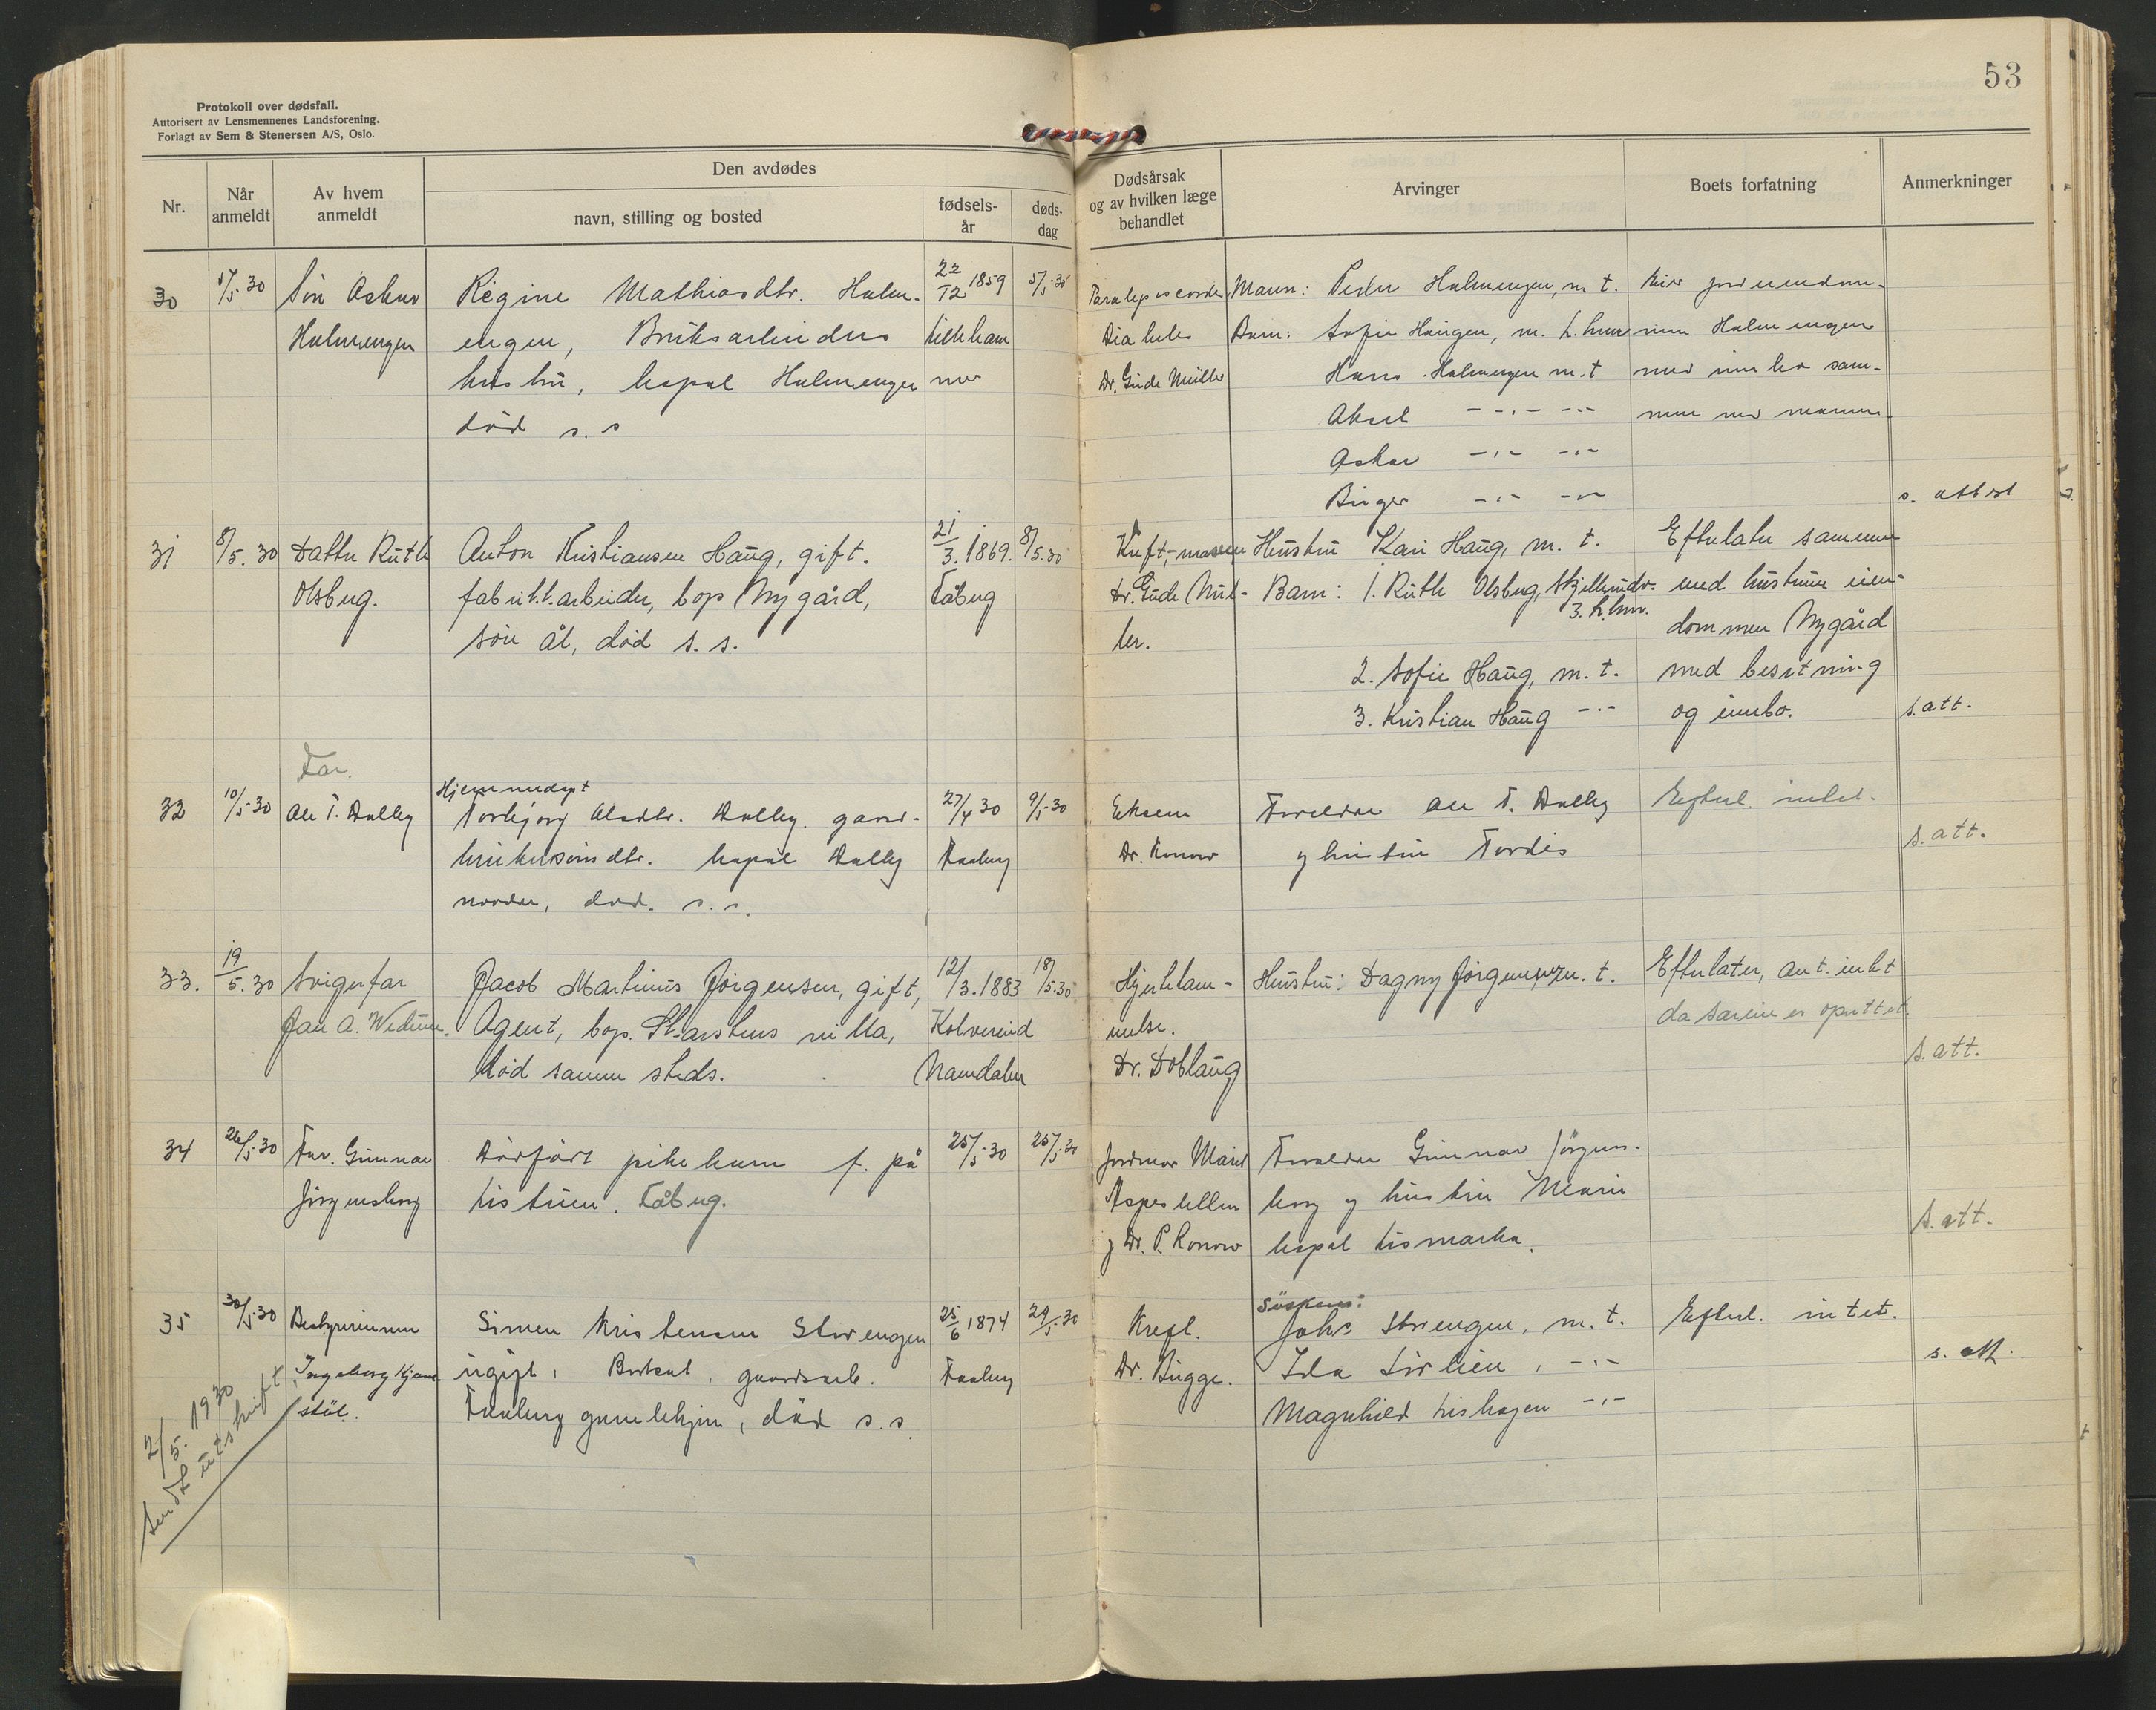 53
Protokoll over dødsfall.
Autorisert av Lensmennenes Landsforening.
Forlagt av Sem & Stenersen A/S, Oslo.
Nr.
Når anmeldt
Av hvem anmeldt
Den avdødes
navn, stilling og bosted
fødsels-år
døds-dag
Dødsårsak og av hvilken læge behandlet
Arvinger
Boets forfatning
Anmerkninger
30
5/5.30
Sön Oskar
Holmengen
Regine Mathiasdtr. Holm-
engen, Bruksarbeiders
hustru, bopæl Holmengen
död s. s
22/12 1859
Lilleham
mer
5/5.30
Diabetes
Dr. Gude Müller
Mann: Peder Holmengen, m. t.
Barn: Sofie Haugen, m. L.hmr
Hans Holmengen m. t
Aksel -"- -"-
Oskar -"- -"-
Birger -"- -"-
Eier jordeiendom-
men Holmengen
med innbo sam-
men med mannen
s. attest
31
8/5.30
Datter Ruth
Olsberg.
Anton Kristiansen Haug, gift.
fabrikkarbeider, bop Nygård,
sön ål, död s. s.
21/3.1869.
Fåberg
8/5.30
Kreft, maven
Dr. Gude Mül-
ler.
Hustru Kari Haug, m. t.
Barn: 1. Ruth Olsberg, Skjellerudv.
3. L.hmr.
2. Sofie Haug, m. t.
3. Kristian Haug -"-
Efterlater sammen
med hustruen eien-
dommen Nygård
med besetning
og innbo.
s. att.
32
10/5.30
Far.
Ole T. Dalby
Hjemmedöpt
Torbjörg Olsdtr. Dalby. gaard-
brukersöns dtr. bopæl Dalby
nordre, död. s. s.
27/4 30
Faaberg
9/5.30
Eksem
Dr. Konow
Foreldre Ole T. Dalby
og hustru Tordis
Efterl. intet.
s. att.
33.
19/5.30
Svigerfar
Jan A. Wedum.
Jacob Martinus Jörgensen, gift,
Agent, bop. villa,
död samme steds.
12/3.1883
Kolvereid
Namdalen
18/5.30
Hjertelam-
melse.
Dr. Doblaug
Hustru: Dagny Jörgensen m. t.
Efterlater, ant. intet
s. att.
34
26/5.30
Far. Gunnar
Jörgensberg
Dödfödt pikebarn f. på
Listuen. Fåberg.
25/5.30
25/5.30
Jordmor Marit
Aspesletten
og Dr. P. Konow
Foreldre Gunnar Jörgens-
berg og hustru Marie
bopæl Lismarka.
s. att.
35
30/5.30
Bestyrerinnen
Ingeborg
stöl.
Simen Kristensen Storengen
ugift, gaardsarb.
Faaberg gamlehjem, död s. s.
25/6 1874
Faaberg
29/5.30
Kreft.
Dr. Bugge.
Söskend:
Johs Storengen, m. t.
Ida Lirlien, -"-
Magnhild Lishagen -"-
Efterl. intet.
s. att.
2/5. 1930
Sendt utskrift